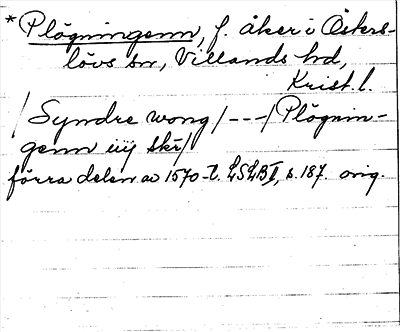 *Plögningenn, f. åker i Östers-
lövs sn, Villands hd,
Krist. l.
/Syndre wong/---/Plögnin-
genn iiij skr/
förra delen av 1570-t. LSLB II, s. 187. orig.